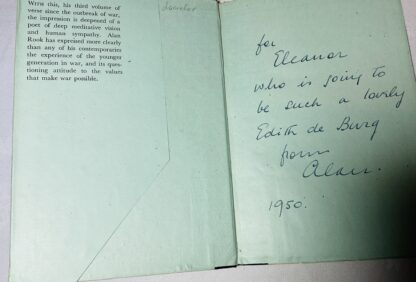 With this, his third volume of
verse since the outbreak of war,
the impression is deepened of a
poet of deep meditative vision
and human sympathy. Alan
Rook has expressed more clearly
than any of his contemporaries
the experience of the younger
generation in war, and its ques-
tioning attitude to the values
that make war possible.
for
Eleanor
who is going to
be such a lovely
Edith de Burg
from
Alan.
1950.